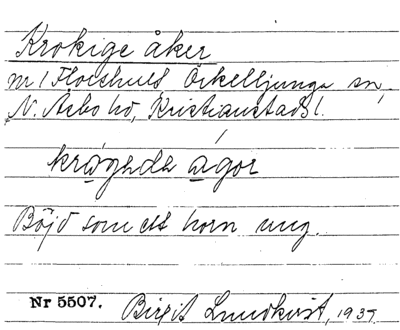 Krokige åker
nr 1 Floalt Örkelljunga sn,
N. Åsbo hd, Kristianstads l.
krågede agor
Böjd som ett horn ung.
Nr 5507. Birgit Lundkvist, 193